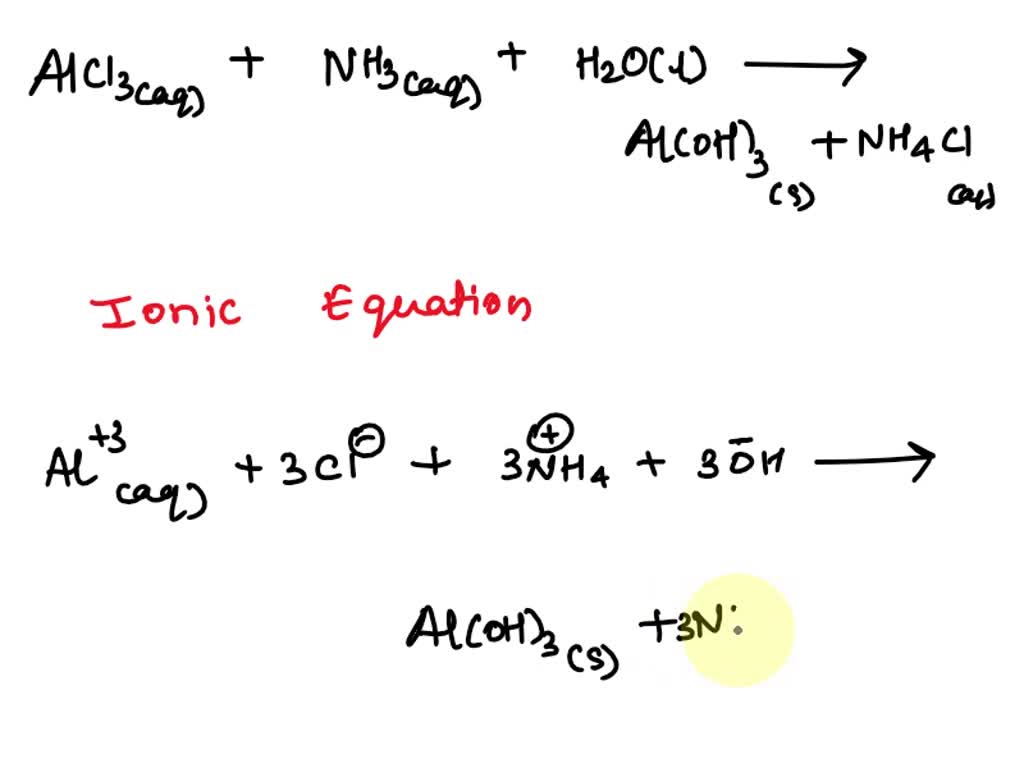 AlCl3(aq) + NH3(aq) + H2O(l) ⟶
Al(OH)3(s) + NH4Cl(aq)
Ionic Equation
Al+3(aq) + 3Cl⊖ + 3N⊕H4 + 3ŌH ⟶
Al(OH)3(s) + 3N